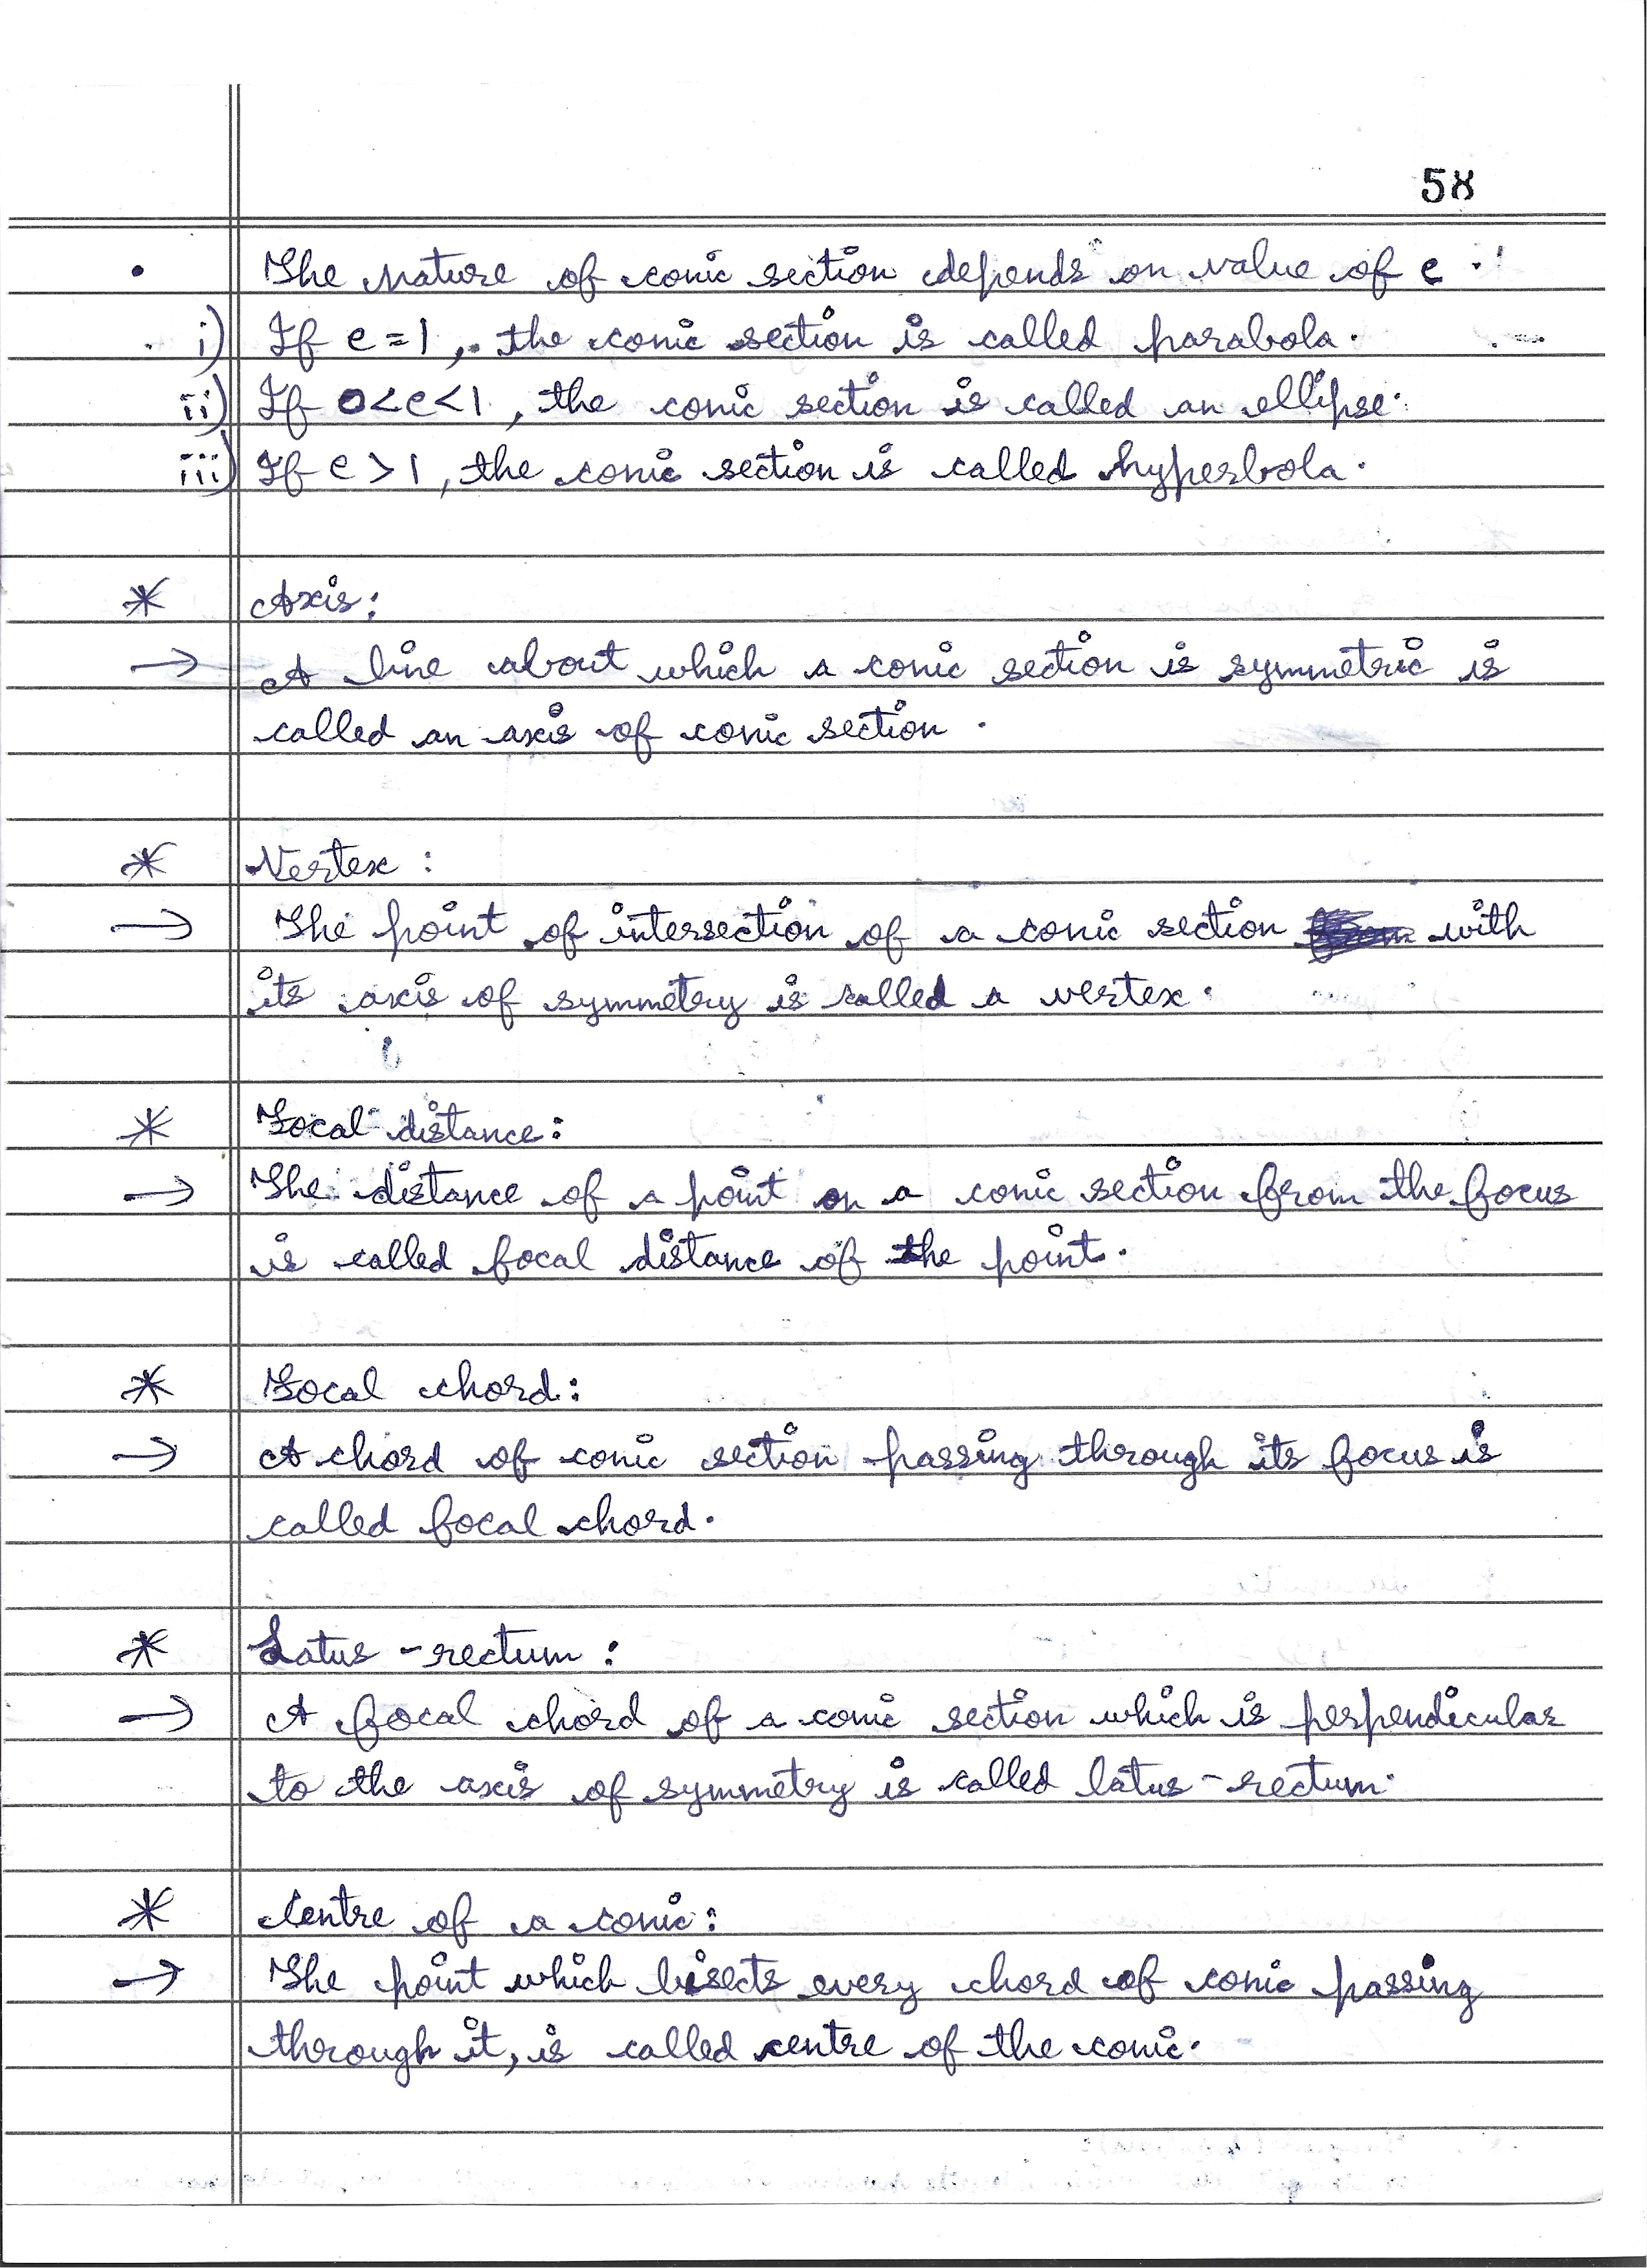 58
• The nature of conic section depends on value of e.
i) If e = 1, the conic section is called parabola.
ii) If 0<e<1, the conic section is called an ellipse.
iii) If e > 1, the conic section is called hyperbola.
* Axis:
→ A line about which a conic section is symmetric is
called an axis of conic section.
* Vertex:
→ The point of intersection of a conic section with
its axis of symmetry is called a vertex.
* Focal distance:
→ The distance of a point on a conic section from the focus
is called focal distance of the point.
* Focal chord:
→ A chord of conic section passing through its focus is
called focal chord.
* Latus-rectum:
→ A focal chord of a conic section which is perpendicular
to the axis of symmetry is called latus-rectum.
* Centre of a conic:
→ The point which bisects every chord of conic passing
through it, is called centre of the conic.